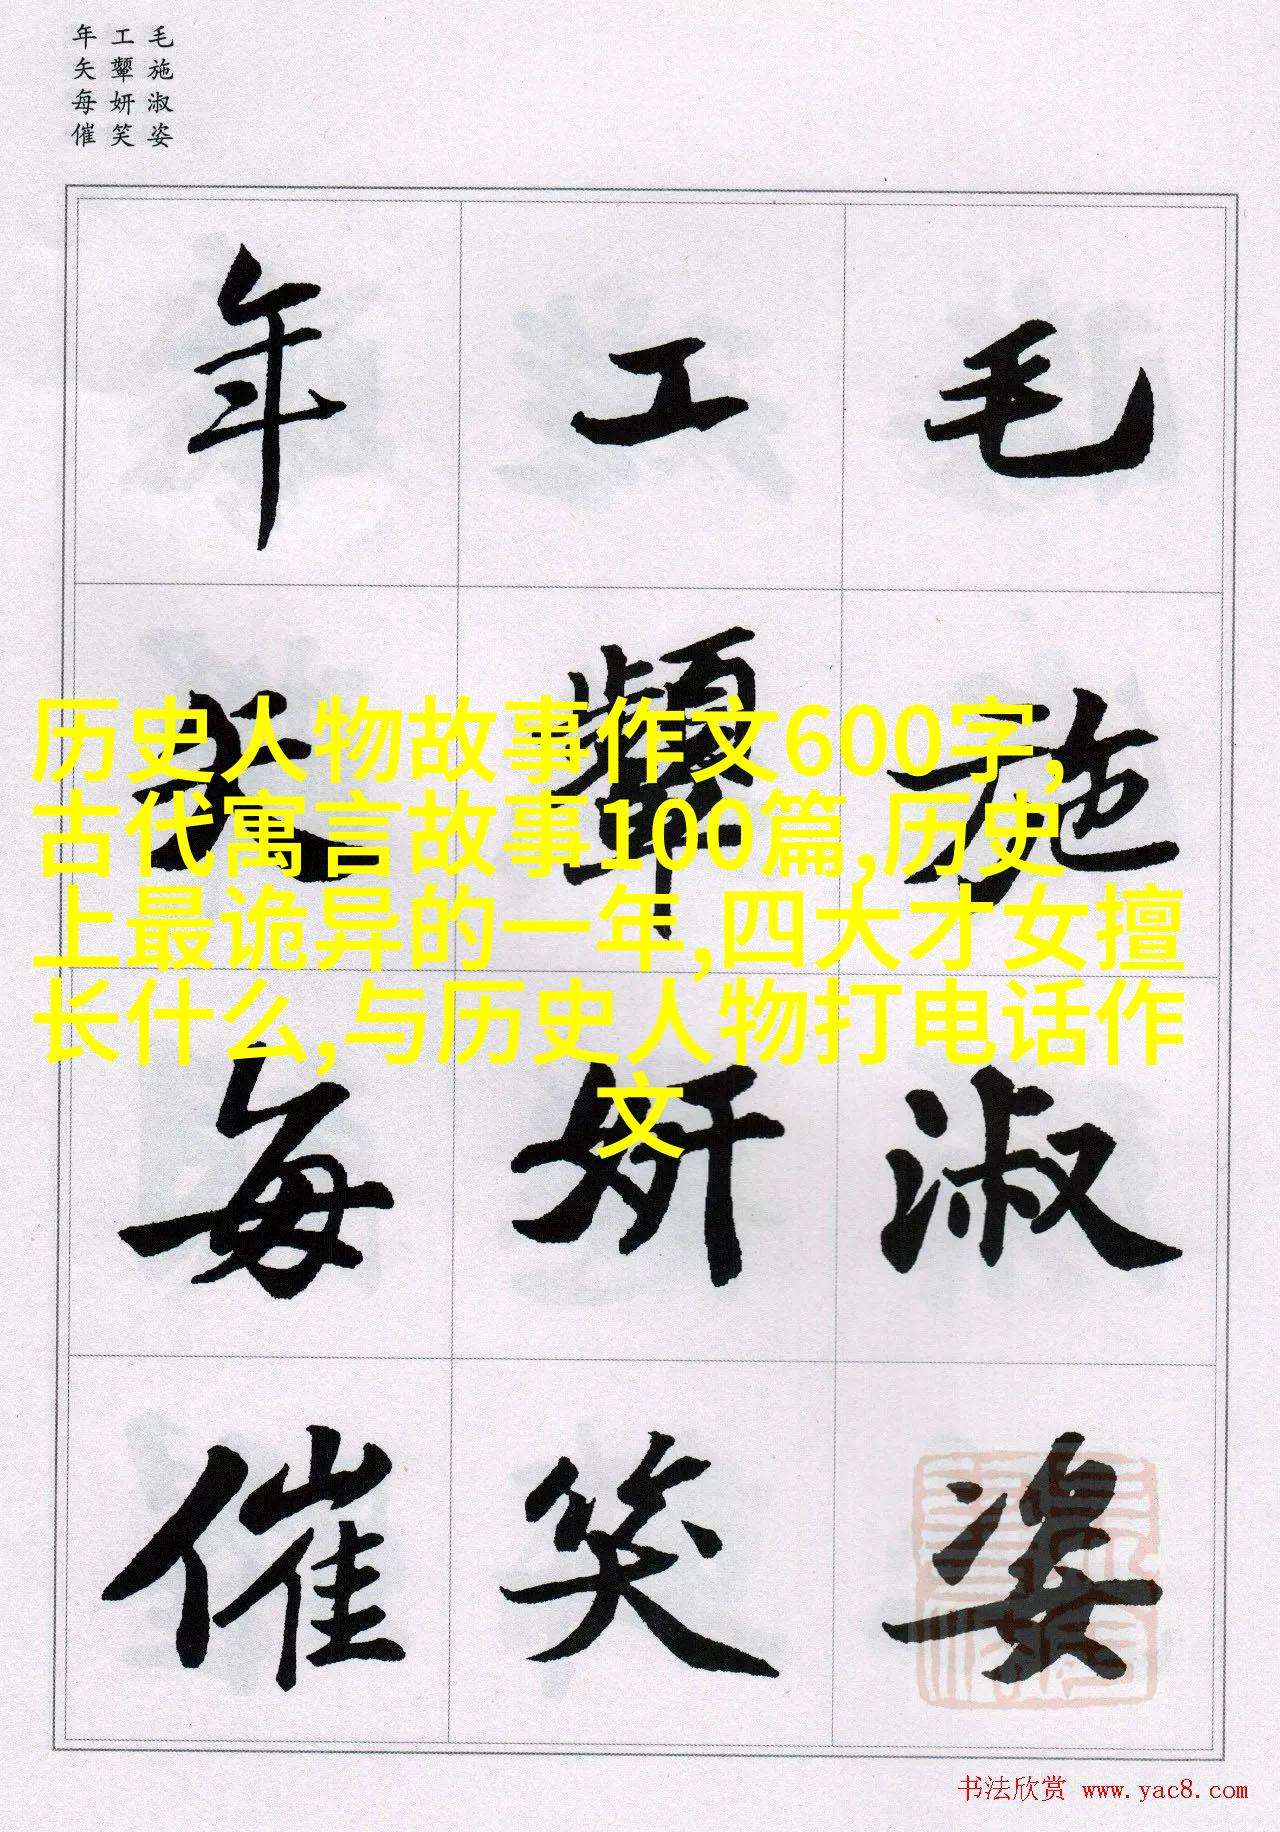 年 工 毛
矢 颦 施
每 妍 淑
催 笑 姿
年 工 毛
矢 颦 施
每 妍 淑
催 笑 姿
历史人物故事作文600字,
古代寓言故事100篇,历史
上最诡异的一年,四大才女擅
长什么,与历史人物打电话作
文
书法欣赏 www.yac8.com